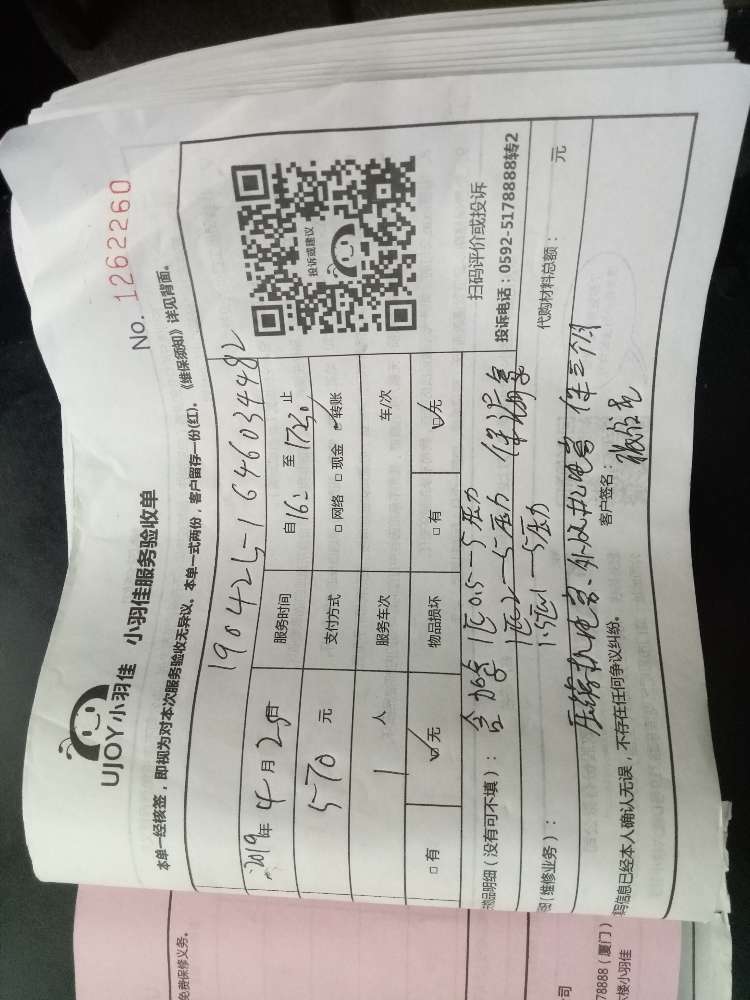 No. 1262260
UJOY小羽佳 小羽佳服务验收单
本单一经核签，即视为对本次服务验收无异议。本单一式两份，客户留存一份(红)。《维保须知》详见背面。
190425-1646034482
2019年 4月 25日 服务时间 自16: 至 1730 止
570 元 支付方式 □网络 □现金 ☑转账
1 人 服务车次 车/次
□有 ☑无 物品损坏 □有 ☑无
投诉或建议
扫码评价或投诉
投诉电话：0592-5178888转2
物品明细（没有可不填）： 含加雪 1匹0.5—5压力
1匹2—5压力
1.5匹1—5压力
（维修业务）： 代购材料总额： 元
压缩机电容、外风机电容 保三个月
写信息已经本人确认无误，不存在任何争议纠纷。 客户签名：
免费保修义务。
78888（厦门）
楼小羽佳
司